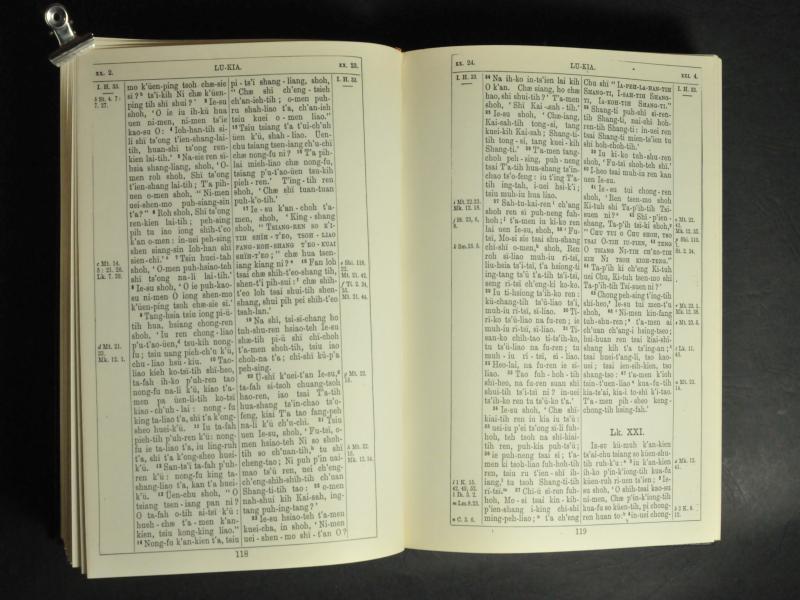 xx. 2.
LU-KIA.
xx. 23.
I. H. 33.
mo k'üen-ping tsoh chœ-sie
si? ⁵ ts'i-kih Ni chœ k'üen-
ping tih shi shui?' ³ Ie-su
shoh, 'O ie iu ih-kü hua
uen ni-men, ni-men ts'ie
kao-su O: ⁴ Ioh-han-tih si-
li shi ts'ong t'ien-shang-lai-
tih, huan-shi ts'ong ren-
kien lai-tih.' ⁵ Na-sie ren si-
hia shang-liang, shoh, 'O-
men roh shoh, Shi ts'ong
t'ien-shang lai-tih; T'a pih-
uen o-men shoh, "Ni-men
uei-shen-mo puh-siang-sin
t'a?" ⁶ Roh shoh, Shi ts'ong
ren-kien lai-tih; peh-sing
pih tu iao iong shih-t'eo
k'an o-men: in-uei peh-sing
shen siang-sin Ioh-han shi
sien-chi.' ⁷ Tsiu huei-tah
shoh, 'O-men puh-hiao-teh
shi ts'ong na-li lai-tih.'
⁸ Ie-su shoh, 'O ie puh-kao-
su ni-men O iong shen-mo
k'üen-ping tsoh chœ-sie si.'
⁹ Tang-hsia tsiu iong pi-ü-
tih hua, hsiang chong-ren
shoh, 'Iu ren chong-liao
p'u-t'ao-üen, tsu-kih nong-
fu; tsiu uang pieh-ch'u k'ü,
chu-liao hsü-kiu. ¹⁰ Tao-
liao kieh ko-tsi-tih shi-heo,
ta-fah ih-ko p'uh-ren tao
nong-fu na-li k'ü, kiao t'a-
men pa üen-li-tih ko-tsi
kiao-ch'uh-lai: nong-fu
king ta-liao t'a, shi t'a k'ong-
sheo huei-k'ü. ¹¹ Iu ta-fah
pieh-tih p'uh-ren k'ü: nong-
fu ie ta-liao t'a, iu ling-ruh
t'a, shi t'a k'ong-sheo huei-
k'ü. ¹² San-ts'i ta-fah p'uh-
ren k'ü: nong-fu king ta-
shang-liao t'a, kan t'a huei-
k'ü. ¹³ Uen-chu shoh, "O
tsiang tsen-iang pan ni?
O ta-fah o-tih ai-tsi k'ü:
hueh-chœ t'a-men k'an-
kien, tsiu kong-king liao."
¹⁴ Nong-fu k'an-kien t'a, tsiu
pi-ts'i shang-liang, shoh,
"Chœ shi ch'eng-tsieh
ch'an-ieh-tih; o-men puh-
ru shah-liao t'a, ch'an-ieh
tsiu kuei o-men liao."
¹⁵ Tsiu tsiang t'a t'ui-ch'uh
üen k'ü, shah-liao. Uen-
chu tsiang tsen-iang ch'u-chi
chœ nong-fu ni? ¹⁶ T'a pih-
lai mieh-liao chœ nong-fu,
tsiang p'u-t'ao-üen tsu-kih
pieh-ren.' T'ing-tih ren
shoh, 'Chœ shi tuan-tuan
puh-k'o-tih.'
¹⁷ Ie-su k'an-choh t'a-
men, shoh, 'King-shang
shoh, "TSIANG-REN SO K'I-
TIH SHÏH-T'EO, TSOH-LIAO
FANG-KOH-SHANG T'EO-KUAI
SHÏH-T'EO;" chœ hua tsen-
iang kiang ni? ¹⁸ Fan loh
tsai chœ shih-t'eo-shang tih,
shen-t'i pih-sui: chœ shih-
t'eo loh tsai shui-tih shen-
shang, shui pih pei shih-t'eo
tsah-lan.'
¹⁹ Na shi, tsi-si-chang ho
tuh-shu-ren hsiao-teh Ie-su
shœ-tih pi-ü shi chi-choh
t'a-men shoh-tih, tsiu iao
choh-na t'a; chi-shi kü-p'a
peh-sing.
²⁰ Ü-shi k'uei-t'an Ie-su,
ta-fah si-tsoh chuang-tsoh
hao-ren, iao tsai T'a-tih
hua-shang ts'in-chao ts'o-
feng, kiai T'a tao fang-peh
na-li k'ü ch'u-chi. ²¹ Tsiu
uen Ie-su, shoh, 'Fu-tsi, o-
men hsiao-teh Ni so shoh-
tih so ch'uan-tih, tu shi
cheng-tao; Ni puh p'in uai-
mao ts'ü ren, nei ch'eng-
ch'eng-shih-shih-tih ch'uan
Shang-ti-tih tao: ²² o-men
nah-shui kih Kai-sah, ing-
tang puh-ing-tang?'
²³ Ie-su hsiao-teh t'a-men
kuei-cha, in shoh, 'Ni-men
uei-shen-mo shi-t'an O?
118
xx. 24.
LU-KIA.
xxi. 4.
I. H. 33.
²⁴ Na ih-ko in-ts'ien lai kih
O k'an. Chœ siang, ho chœ
hao, shi shui-tih?' T'a-men
shoh, 'Shi Kai-sah-tih.'
²⁵ Ie-su shoh, 'Chœ-iang,
Kai-sah-tih tong-si, tang
kuei-kih Kai-sah; Shang-ti-
tih tong-si, tang kuei-kih
Shang-ti.' ²⁶ T'a-men tang-
chong peh-sing, puh-neng
tsai T'a-tih hua-shang ts'in-
chao ts'o-feng: iu t'ing T'a-
tih ing-tah, i-uei hsi-k'i;
tsiu muh-iu hua shoh.
²⁷ Sah-tu-kai-ren ch'ang
shoh ren si puh-neng fuh-
hoh; t'a-men iu ki-ko ren
lai uen Ie-su, shoh, ²⁸ 'Fu-
tsi, Mo-si-sie tsai shu-shang
chi-shi o-men, shoh, Ren
roh si-liao muh-iu ri-tsi,
liu-hsia ts'i-tsi, t'a hsiong-ti
ing-tang ts'ü t'a-tih ts'i-tsi,
seng ri-tsi ch'eng-ki ko-ko.
²⁹ Iu ti-hsiong ts'ih-ko ren:
kü-chang-tih ts'ü-liao ts'i,
muh-iu ri-tsi, si-liao. ³⁰ Ti-
ri-ko ts'ü-liao na fu-ren; ie
muh-iu ri-tsi, si-liao. ³¹ Ti-
san-ko chih-tao ti-ts'ih-ko,
tu ts'ü-liao na fu-ren; tu
muh-iu ri-tsi, si-liao.
³² Heo-lai, na fu-ren ie si-
liao. ³³ Tao fuh-hoh-tih
shi-heo, na fu-ren suan shi
shui-tih ts'i-tsi ni? in-uei
ts'ih-ko ren tu ts'ü-ko t'a.'
³⁴ Ie-su shoh, 'Chœ shi-
kiai-tih ren iu kia iu ts'ü:
³⁵ uei-iu p'ei ts'ong si-li fuh-
hoh, teh tsoh na shi-kiai-
tih ren, puh-kia puh-ts'ü;
³⁶ ie puh-neng tsai si; t'a-
men ki tsoh-liao fuh-hoh-tih
ren, tsiu ru t'ien-shi ih-
iang, tu tsoh Shang-ti-tih
ri-tsi. ³⁷ Chi-ü si-ren fuh-
hoh, Mo-si tsai king-kih-
p'ien-shang i-king chi-shi
ming-peh-liao; t'a ch'eng
Chu shi "IA-PEH-LA-HAN-TIH
SHANG-TI, I-SAH-TIH SHANG-
TI, IA-KOH-TIH SHANG-TI."
³⁸ Shang-ti puh-shi si-ren-
tih Shang-ti, nai-shi hoh-
ren-tih Shang-ti: in-uei ren
tsai Shang-ti mien-ts'ien tu
shi hoh-choh-tih.'
³⁹ Iu ki-ko tuh-shu-ren
shoh, 'Fu-tsi shoh-teh shi.'
⁴⁰ I-heo tsai muh-iu ren kan
uen Ie-su.
⁴¹ Ie-su tui chong-ren
shoh, 'Ren tsen-mo shoh
Ki-tuh shi Ta-p'ih-tih Tsi-
suen ni? ⁴² Shi-p'ien-
shang, Ta-p'ih tsi-ki shoh,
"CHU TUI O CHU SHOH, TSO
TSAI O-TIH IU-PIEN, ⁴³ TENG
O TSIANG NI-TIH CH'EO-TIH
SHI NI TSOH KIOH-TENG."
⁴⁴ Ta-p'ih ki ch'eng Ki-tuh
uei Chu, Ki-tuh tsen-mo shi
Ta-p'ih-tih Tsi-suen ni?'
⁴⁵ Chong peh-sing t'ing-tih
shi-heo, Ie-su tui men-t'u
shoh, ⁴⁶ 'Ni-men kin-fang
tuh-shu-ren; t'a-men ai
ch'uan ch'ang-i hsing-tseo;
hsi-huan ren tsai kiai-shi-
shang kih t'a ts'ing-an;
tsai huei-t'ang-li, tso kao-
uei; tsai ien-sih-kien, tso
shang-tso: ⁴⁷ t'a-men k'ioh
tsin-t'uen-liao kua-fu-tih
kia-ts'ai, kia-i to-shi k'i-tao.
T'a-men pih-sheo keng-
chong-tih hsing-fah.'
Lk. XXI.
Ie-su kü-muh k'an-kien
ts'ai-chu tsiang so küen-shu-
tih ruh-k'u: ² iu k'an-kien
ih-ko p'in-k'iong-tih kua-fu
küen-ruh ri-uen ts'ien; ³ Ie-
su shoh, 'O shih-tsai kao-su
ni-men, Chœ p'in-k'iong-tih
kua-fu so küen-tih, pi chong-
ren huan to: ⁴ in-uei chong-
119